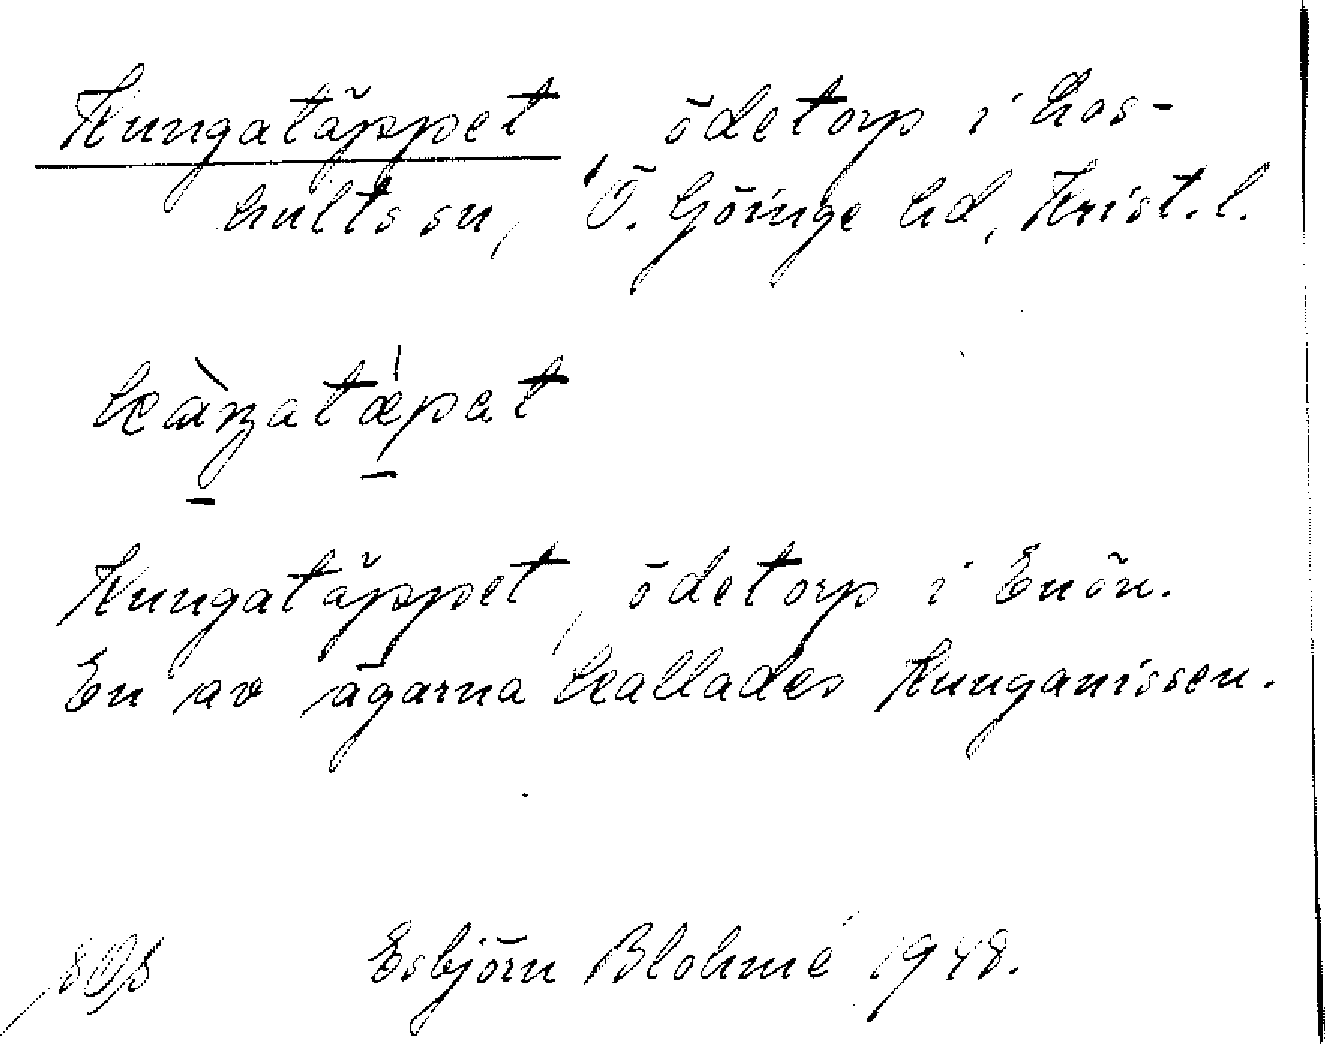 Kungatäppet ödetorp i Hos-
hults sn, Ö. Göinge hd, Krist. l.
kàŋatæ̍pat
Kungatäppet, ödetorp i Enön.
En av ägarna kallades Kunganissen.
Esbjörn Blohmé 1948.